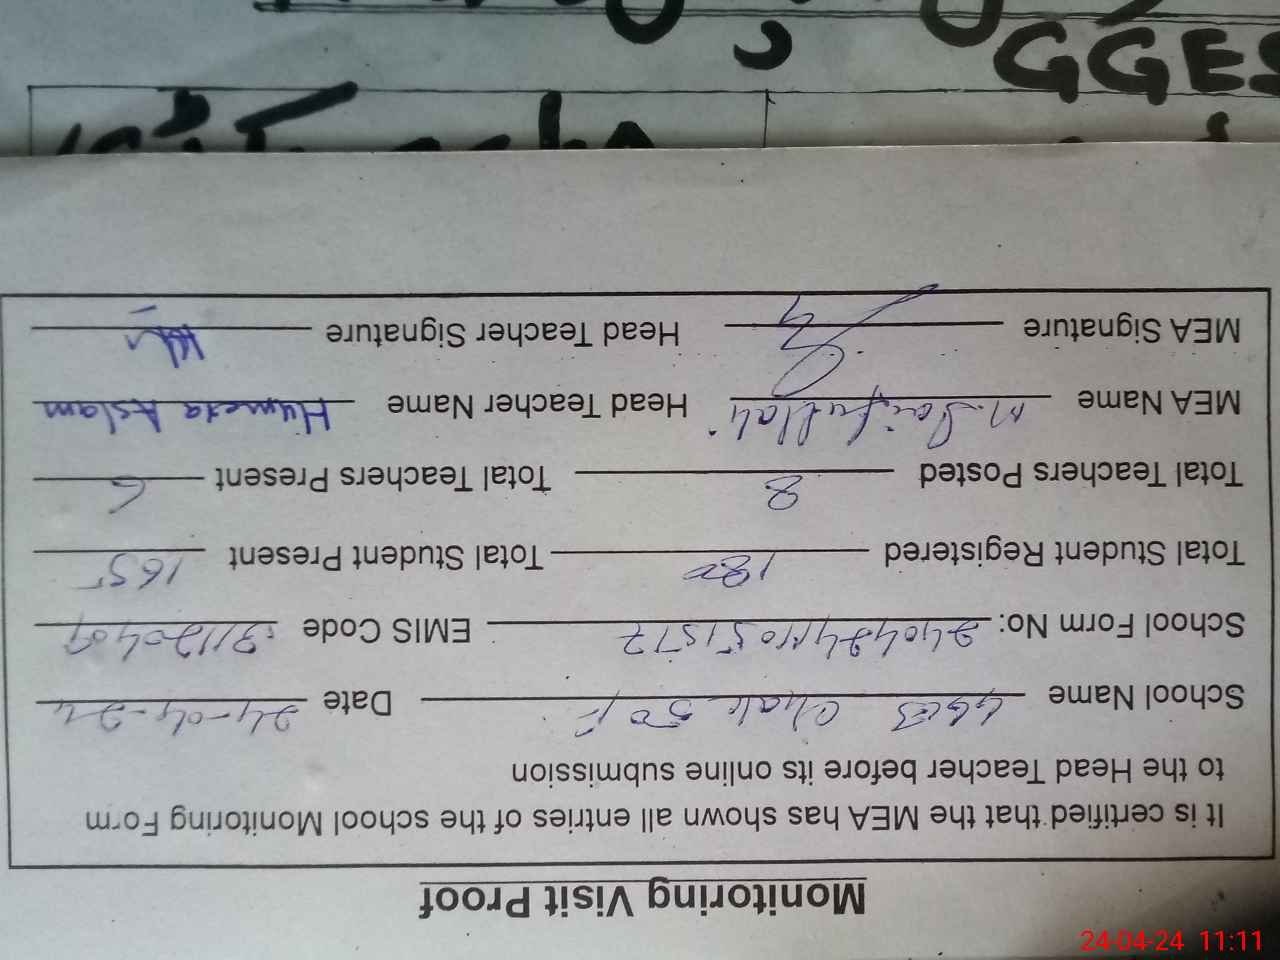 Monitoring Visit Proof
It is certified that the MEA has shown all entries of the school Monitoring Form
to the Head Teacher before its online submission
School Name Chak 50 F Date 24-04-24
School Form No: EMIS Code 31120409
Total Student Registered 180 Total Student Present 165
Total Teachers Posted 8 Total Teachers Present 6
MEA Name M. Saifullah Head Teacher Name Humera Aslam
MEA Signature Head Teacher Signature
GGES
24-04-24 11:11